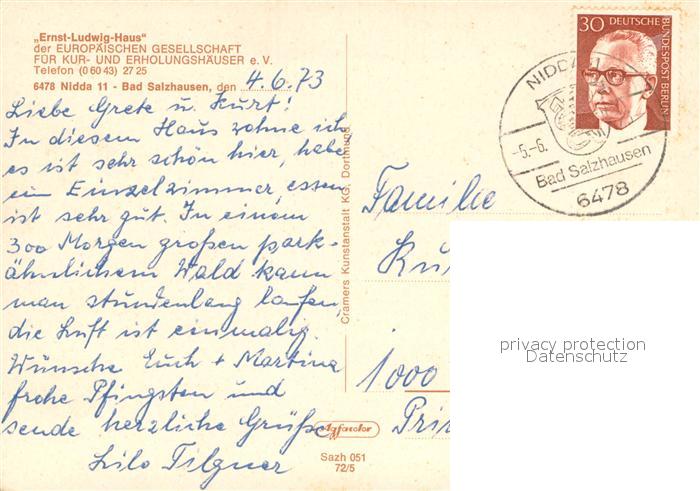 „Ernst-Ludwig-Haus"
der EUROPÄISCHEN GESELLSCHAFT
FÜR KUR- UND ERHOLUNGSHÄUSER e. V.
Telefon (0 60 43) 27 25
6478 Nidda 11 - Bad Salzhausen, den 4.6.73
Liebe Grete u. Kurt!
In diesem Haus wohne ich
es ist sehr schön hier, habe
ein Einzelzimmer, essen
ist sehr gut. In einem
300 Morgen großen park-
ähnlichem Wald kann
man stundenlang laufen,
die Luft ist einmalig.
Wünsche Euch + Martina
frohe Pfingsten und
sende herzliche Grüße
Lilo Tilgner
Cramers Kunstanstalt KG, Dortmund
Agfacolor
Sazh 051
72/5
30 DEUTSCHE
BUNDESPOST BERLIN
NIDDA
-5.-6.
Bad Salzhausen
6478
Familie
1000
privacy protection
Datenschutz